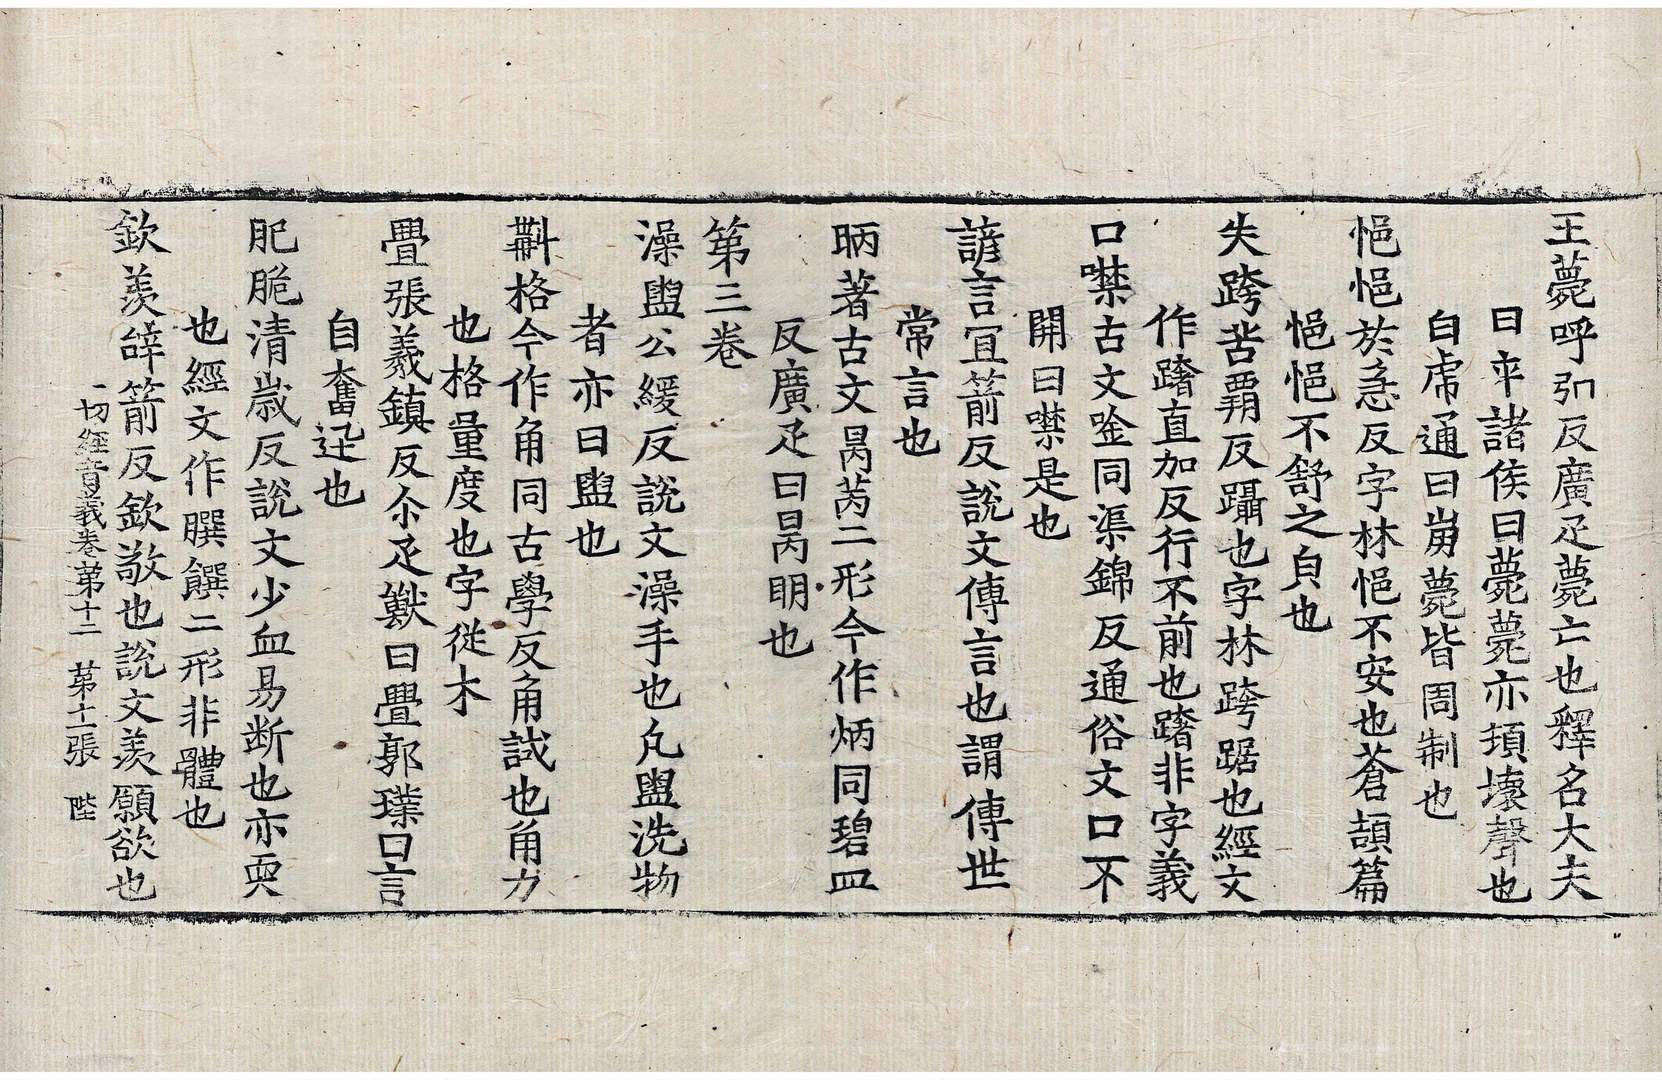 王薨呼弘反廣疋薨亡也釋名大夫
曰卒諸侯曰薨薨亦頓壞聲也
白虎通曰崩薨皆周制也
悒悒於急反字林悒不安也蒼頡篇
悒悒不舒之皃也
失跨苦霸反躡也字林跨踞也經文
作躇直加反行不前也躇非字義
口噤古文唫同渠錦反通俗文口不
開曰噤是也
諺言宜箭反說文傳言也謂傳世
常言也
昞著古文昺苪二形今作炳同碧皿
反廣疋曰昺明也
第三卷
澡盥公緩反說文澡手也凡盥洗物
者亦曰盥也
斠格今作角同古學反角試也角力
也格量度也字從木
疊張羲鎮反尒疋獸曰疊郭璞曰言
自奮迅也
肥脆清歲反說文少血易断也亦耎
也經文作膬饌二形非體也
欽羨辝箭反欽敬也說文羨願欲也
一切經音義卷第十二 第十一張 陛